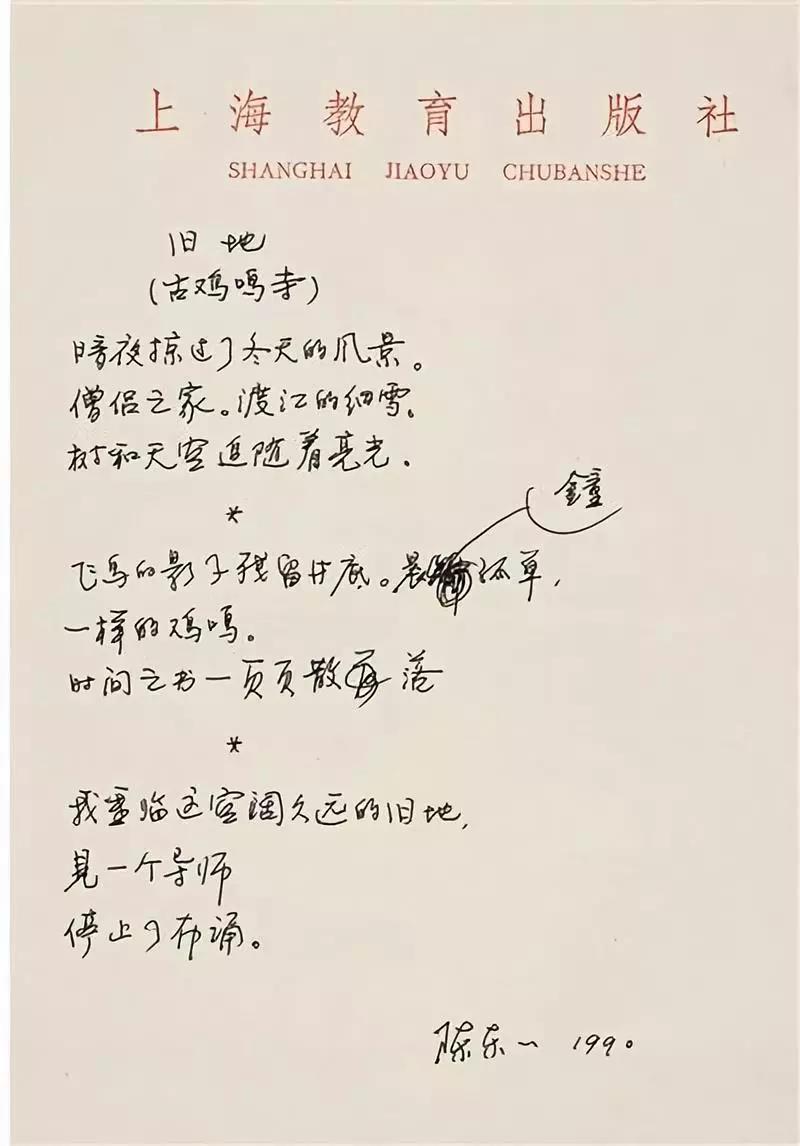 上海教育出版社
SHANGHAI JIAOYU CHUBANSHE
旧地
(古鸡鸣寺)
暗夜掠过了冬天的风景。
僧侣之家。渡江的细雪。
树和天空追随着亮光.
*
鐘
飞鸟的影子残留井底。晨孤单,
一样的鸡鸣。
时间之书一页页散落
*
我重临这空阔久远的旧地,
见一个导师
停止了布诵。
陈东东 1990